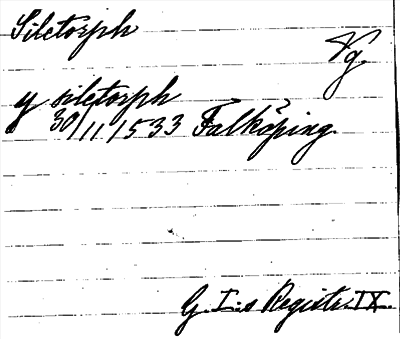 Siletorph
Vg
y siletorph
30/11 1533 Falköping
G. I:s Registr. IX.